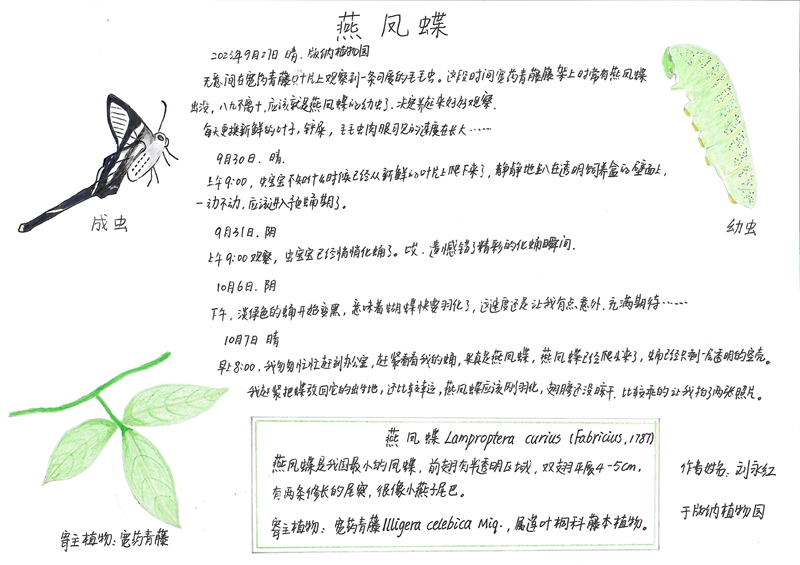 燕凤蝶
2023年9月27日 晴. 版纳植物园
无意间在宽药青藤叶片上观察到一条可爱的毛毛虫。这段时间宽药青藤藤架上时常有燕凤蝶
出没，八九不离十，应该就是燕凤蝶的幼虫了. 决定养起来好好观察.
每天更换新鲜的叶子，铲屎，毛毛虫肉眼可见的速度在长大……
9月30日. 晴.
上午9:00，虫宝宝不知什么时候已经从新鲜的叶片上爬下来了，静静地趴在透明饲养盒的壁面上，
一动不动，应该进入预蛹期了。
9月31日. 阴
上午9:00观察，虫宝宝已经悄悄化蛹了。哎. 遗憾错了精彩的化蛹瞬间.
10月6日. 阴
下午，淡绿色的蛹开始变黑，意味着蝴蝶快要羽化了，这速度还是让我有点意外. 充满期待……
10月7日 晴
早上8:00，我匆匆忙忙赶到办公室，赶紧看看我的蛹，果真是燕凤蝶，燕凤蝶已经爬出来了，蛹已经只剩一层透明的空壳。
我赶紧把蝶放回它的出生地，还比较幸运，燕凤蝶应该刚羽化，翅膀还没晾干. 比较乖的让我拍了两张照片。
成虫
幼虫
寄主植物：宽药青藤
燕凤蝶 Lamproptera curius (Fabricius, 1787)
燕凤蝶是我国最小的凤蝶，前翅有半透明区域，双翅平展4-5cm，
有两条修长的尾突，很像小燕子尾巴。
寄主植物：宽药青藤 Illigera celebica Miq.，属莲叶桐科藤本植物。
作者姓名：刘永红
于版纳植物园